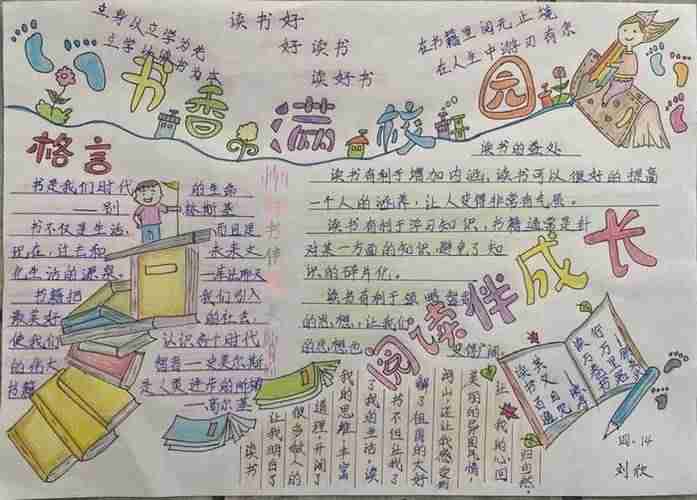 立身以立学为先
立学以读书为本
读书好
好读书
读好书
在书籍里阅无止境
在人生中游刃有余
书香满校园
格言
书是我们时代的生命
——别林斯基
书不仅是生活,而且是
现在,过去和未来文
化生活的源泉。
——库法耶夫
书籍把我们引入
最美好的社会,
使我们认识各个时代
的伟大智者——史美尔斯
书籍是人类进步的阶梯
——高尔基
读书的益处
读书有利于增加内涵,读书可以很好的提高
一个人的涵养,让人变得非常有气质。
读书有利于学习知识,书籍通常是针
对某一方面的知识,避免了知
识的碎片化。
读书有利于领略
的思想,让我们
的思想
阅读伴成长
读书
让我明白了
很多做人的
道理,开阔了
我的思维,丰富
了我的生活。读
书不但让我了
解了祖国的大好
河山,还让我感受到
美丽的异国风情,
让我的心回
归自然。
读书百遍
其义自见
行万里
读万卷书
刘欣